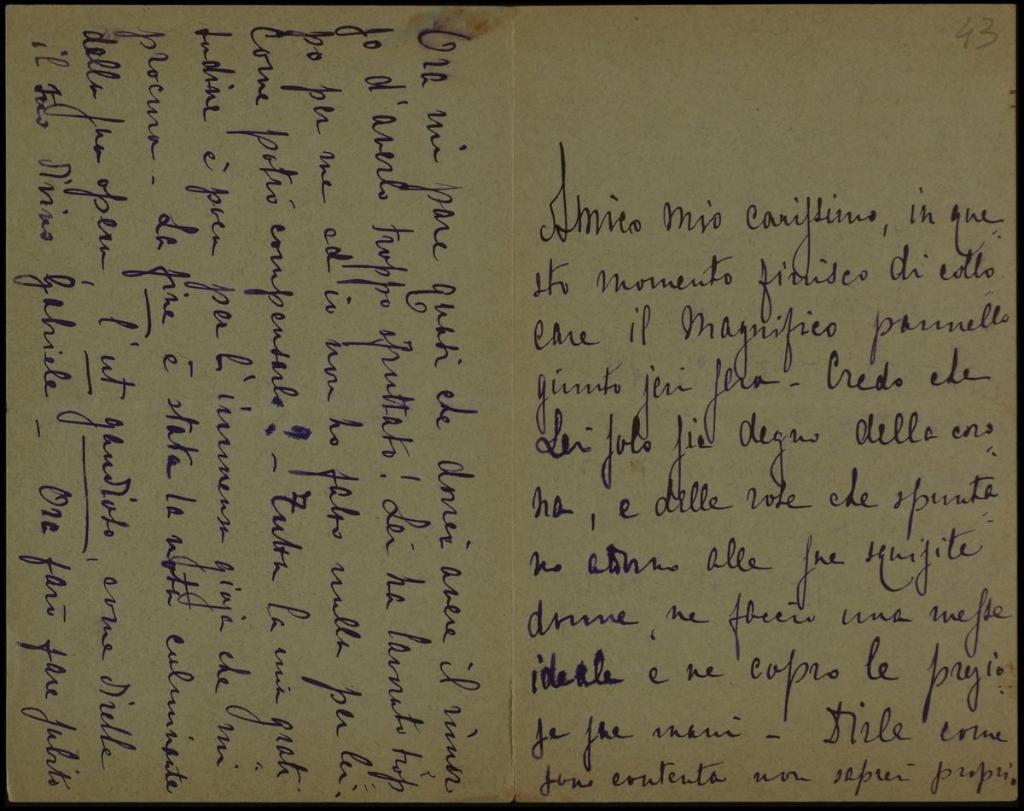 43
Amico mio carissimo, in que
sto momento finisco di collo
care il Magnifico pannello
giunto jeri sera - Credo che
Lei solo sia degno della coro
na, e delle rose che spunta
no attorno alle sue squisite
donne, ne faccio una messe
ideale e ne copro le prezio
se sue mani - Dirle come
sono contenta non saprei propri
Ora mi pare quasi che dovrei avere il rimor
so d'averlo troppo sfruttato! Lei ha lavorato trop
po per me ed io non ho fatto nulla per lei.
Come potrò compensarla? - Tutta la mia grati
tudine è poca per l'immensa gioja che mi
procura - La fine è stata la nota culminante
della sua opera, l'ut gaudioso, come direbbe
il suo divino Gabriele - Ora farò fare subito